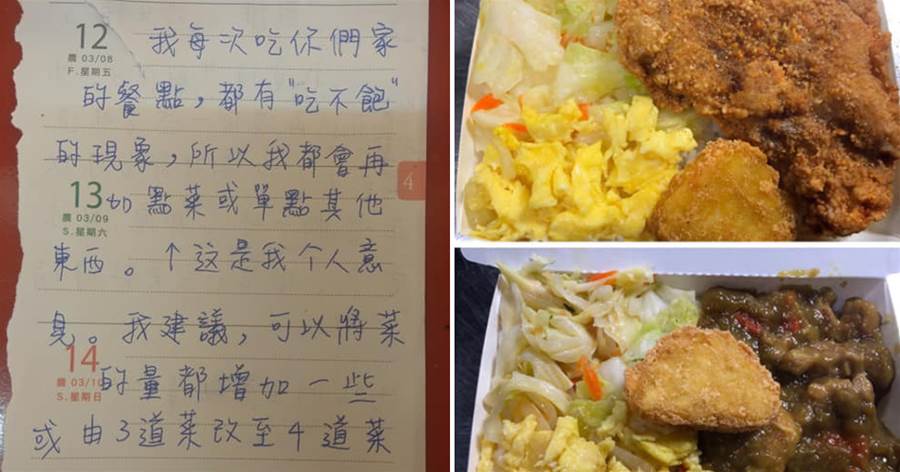 12
農 03/08
F.星期五
我每次吃你們家
的餐點，都有"吃不飽"
的現象，所以我都會再
13
農 03/09
S.星期六
加點菜或單點其他
東西。↑这是我个人意
4
見。我建議，可以將菜
14
農 03/10
S.星期日
的量都增加一些
或由3道菜改至4道菜